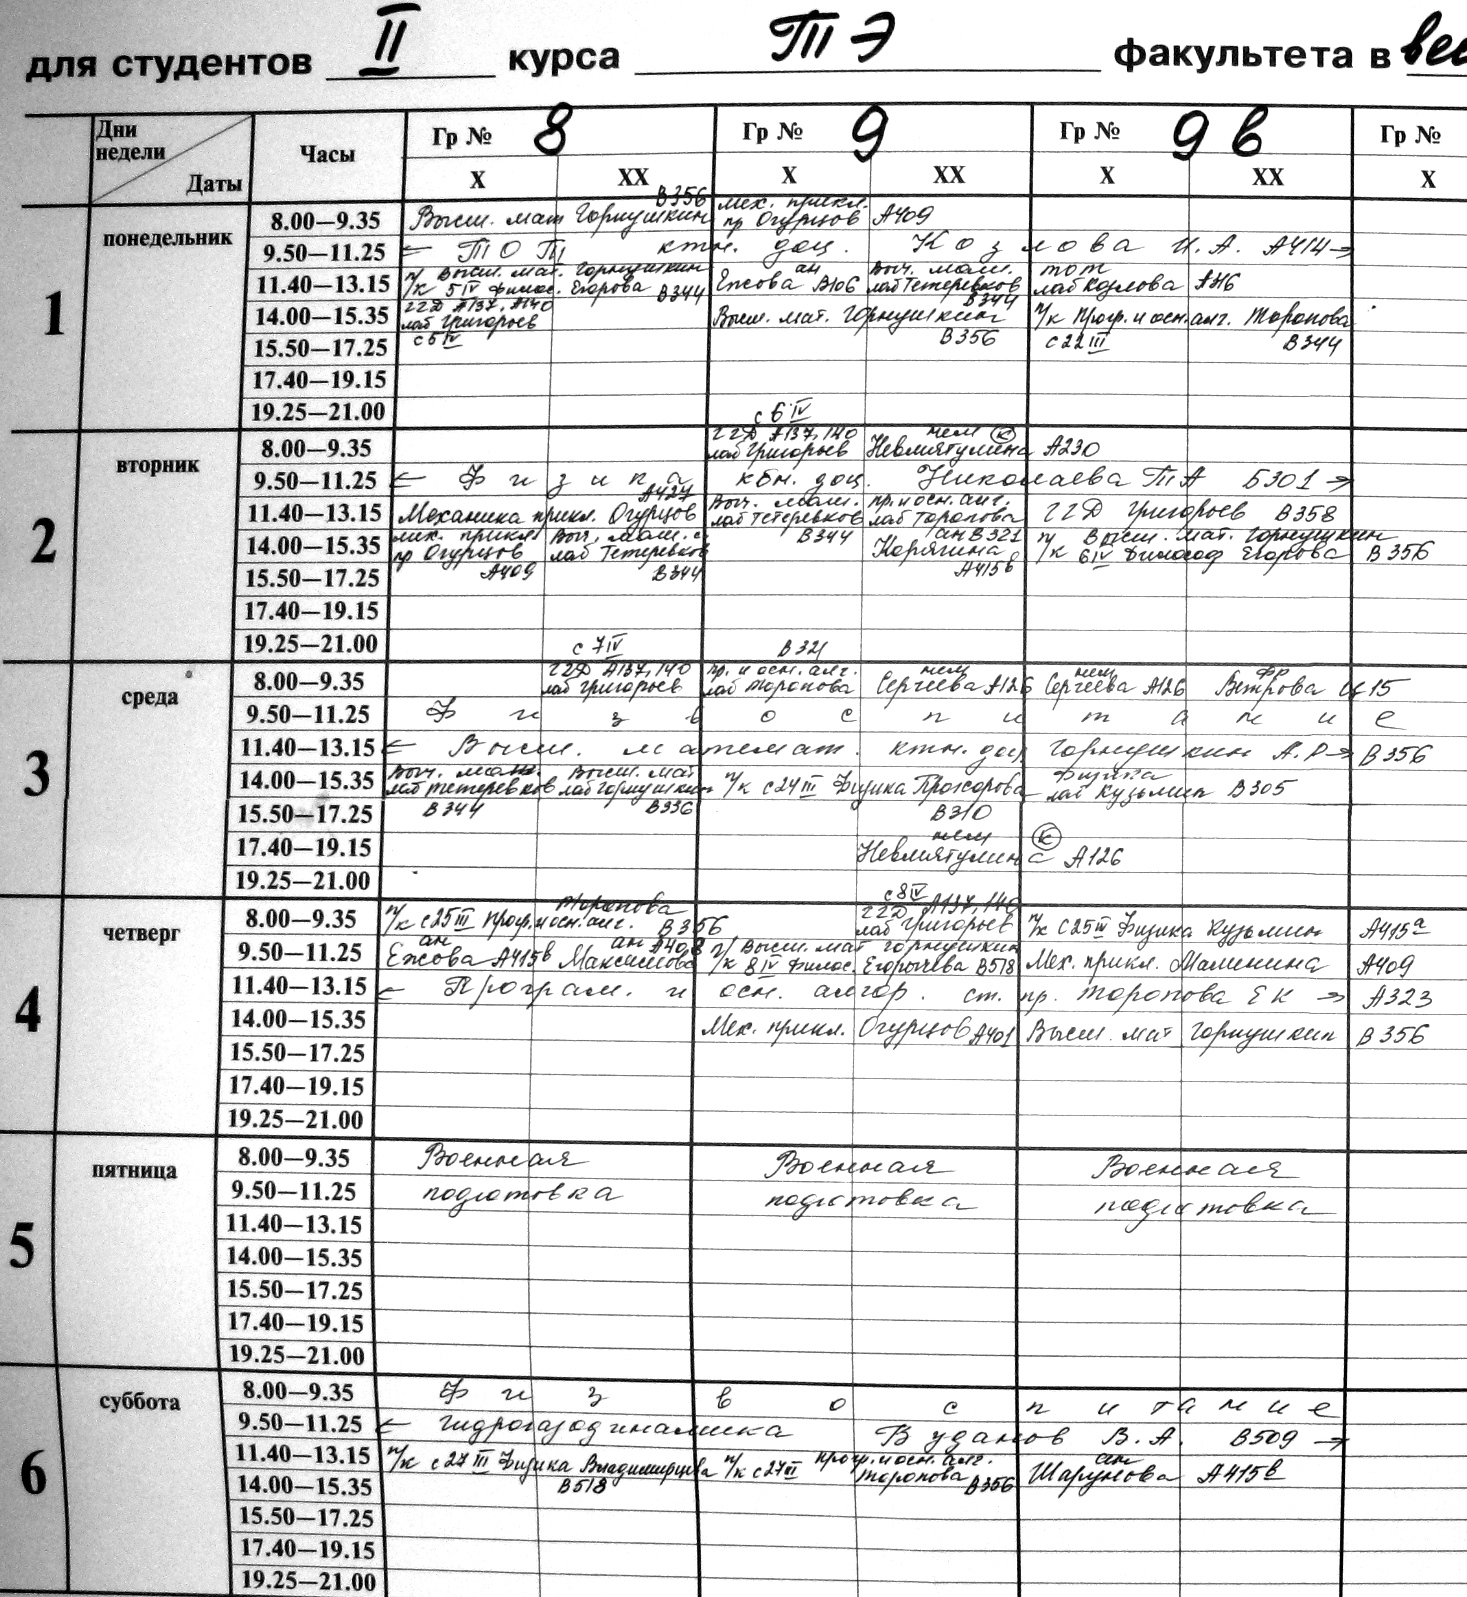 для студентов II курса ТЭ факультета в вес
Дни недели Даты Часы Гр № 8 Гр № 9 Гр № 9 в Гр №
X XX X XX X XX X
1 понедельник
8.00—9.35 Высш. мат Горнушкин В356 мех. прикл. пр Огурцов А409
9.50—11.25 ← ТОТ ктн. доц. Козлова И.А. А414→
11.40—13.15 п/к Высш. мат. Горнушкин 5 IV филос. Егорова В344 ан Ежова В106 Выч. маш. лаб Тетеревков В344 тот лаб Козлова А116
14.00—15.35 ГГД А137, А140 лаб Григорьев Высш. мат. Горнушкин п/к Прогр. и осн. алг. Торопова
15.50—17.25 с 5 IV В356 с 22 III В344
17.40—19.15
19.25—21.00
2 вторник
с 6 IV
8.00—9.35 ГГД А137, 140 лаб Григорьев нем (к) Невмятулина А230
9.50—11.25 ← Физика кбн. доц. Николаева ТА Б301 →
11.40—13.15 Механика прикл. Огурцов А427 Выч. маш. лаб Тетеревков пр. и осн. алг. лаб Торопова ГГД Григорьев В358
14.00—15.35 мех. прикл пр Огурцов Выч. маш. лаб Тетеревков В344 ан В321 Корягина п/к Высш. мат. Горнушкин 6 IV Философ Егорова В356
15.50—17.25 А409 В344 А415в
17.40—19.15
19.25—21.00
3 среда
с 7 IV В321
8.00—9.35 ГГД А137, 140 лаб Григорьев пр. и осн. алг. лаб Торопова нем Сергеева А126 нем Сергеева А126 фр Ветрова
9.50—11.25 Физвоспитание
11.40—13.15 ← Высш. математ. ктн. доц Горнушкин А.Р→ В356
14.00—15.35 Выч. маш. лаб Тетеревков Высш. мат лаб Горнушкин п/к с 24 III Физика Прохорова Физика лаб Кузьмин В305
15.50—17.25 В344 В336 В310
17.40—19.15 нем Невмятулина (к) А126
19.25—21.00
4 четверг
с 8 IV
8.00—9.35 п/к с 25 III Прогр. и осн. алг. Торопова В356 ГГД А137, 140 лаб Григорьев п/к с 25 III Физика Кузьмин А415а
9.50—11.25 ан Ежова А415в ан А408 Максимова п/к Высш. мат Горнушкин 8 IV филос. Егорычева В518 Мех. прикл. Малинина А409
11.40—13.15 ← Програм. и осн. алгор. ст. пр. Торопова ЕК → А323
14.00—15.35 Мех. прикл. Огурцов А401 Высш. мат Горнушкин В356
15.50—17.25
17.40—19.15
19.25—21.00
5 пятница
8.00—9.35 Военная Военная Военная
9.50—11.25 подготовка подготовка подготовка
11.40—13.15
14.00—15.35
15.50—17.25
17.40—19.15
19.25—21.00
6 суббота
8.00—9.35 Физвоспитание
9.50—11.25 ← Гидрогазодинамика Буданов В.А. В509 →
11.40—13.15 п/к с 27 III Физика Владимирцева п/к с 27 III Прогр. и осн. алг. Торопова ан Шарунова А415в
14.00—15.35 В518 В356
15.50—17.25
17.40—19.15
19.25—21.00